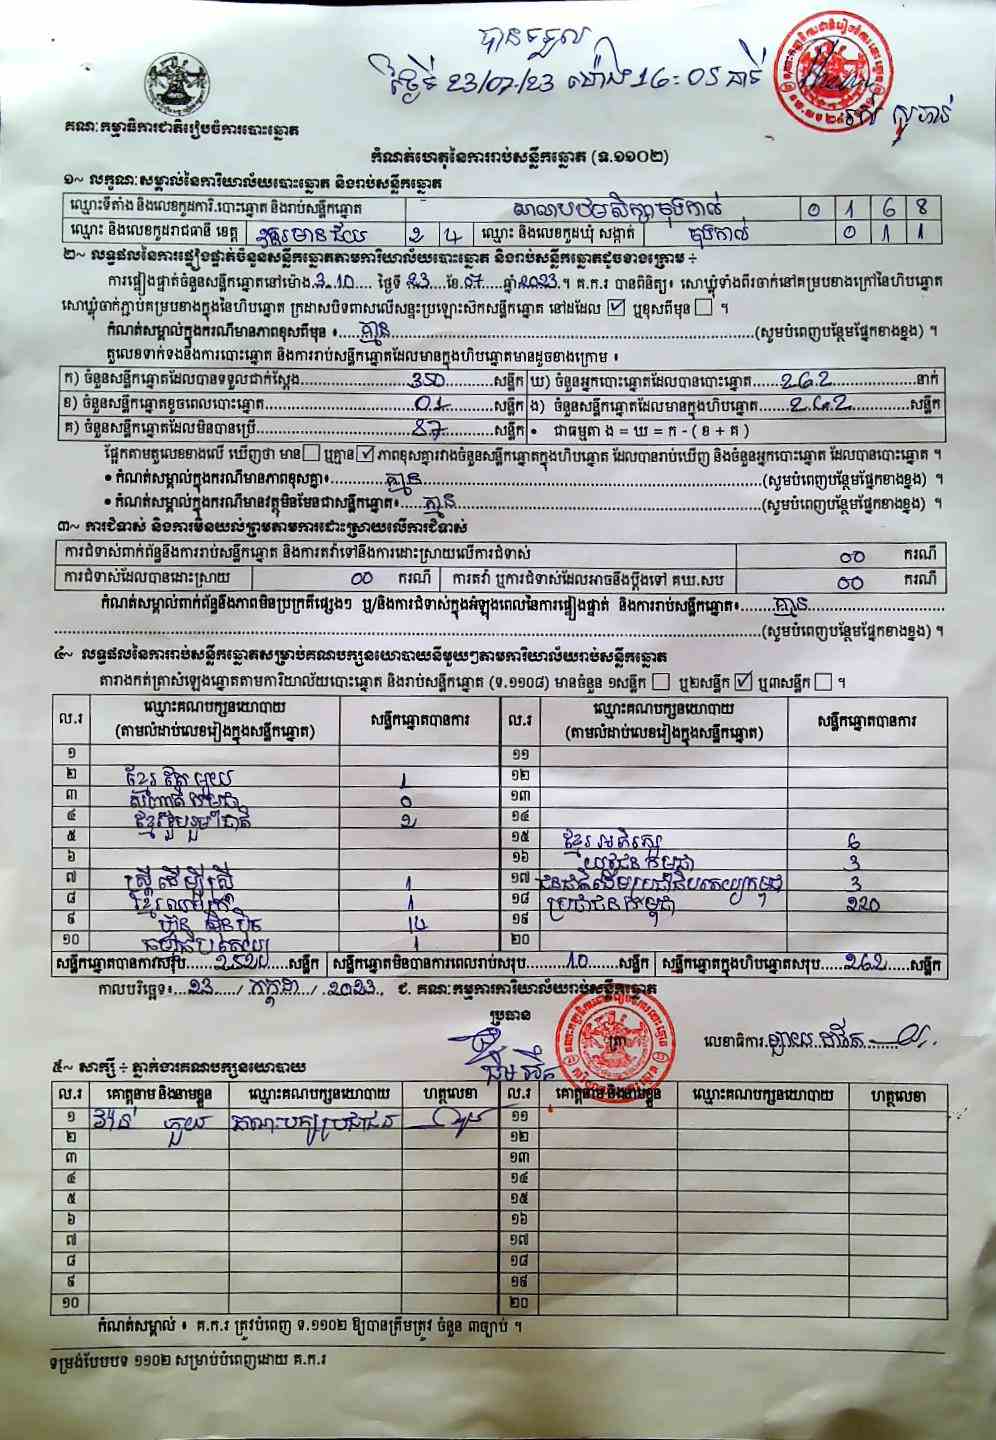 បានទទួល
ថ្ងៃទី 23/07/23 ម៉ោង 16:05 នាទី
គណៈកម្មាធិការជាតិរៀបចំការបោះឆ្នោត
កំណត់ហេតុនៃការរាប់សន្លឹកឆ្នោត (ទ.១១០២)
១~ លក្ខណៈសម្គាល់នៃការិយាល័យបោះឆ្នោត និងរាប់សន្លឹកឆ្នោត
ឈ្មោះទីតាំង និងលេខកូដការិ.បោះឆ្នោត និងរាប់សន្លឹកឆ្នោត សាលាបឋមសិក្សា 0 1 6 8
ឈ្មោះ និងលេខកូដរាជធានី ខេត្ត 2 4 ឈ្មោះ និងលេខកូដឃុំ សង្កាត់ 0 1 1
២~ លទ្ធផលនៃការផ្ទៀងផ្ទាត់ចំនួនសន្លឹកឆ្នោតតាមការិយាល័យបោះឆ្នោត និងរាប់សន្លឹកឆ្នោតដូចខាងក្រោម ÷
ការផ្ទៀងផ្ទាត់ចំនួនសន្លឹកឆ្នោតនៅម៉ោង.3.10.... ថ្ងៃទី 23...ខែ.07.....ឆ្នាំ.2023.។ គ.ក.រ បានពិនិត្យ៖ សោឃ្លុំទាំងពីរចាក់នៅគម្របខាងក្រៅនៃហិបឆ្នោត
សោឃ្លុំចាក់ភ្ជាប់គម្របខាងក្នុងនៃហិបឆ្នោត ក្រដាសបិទពាសលើសន្ទះប្រឡោះស៊កសន្លឹកឆ្នោត នៅដដែល ☑ ឬខុសពីមុន ☐ ។
កំណត់សម្គាល់ក្នុងករណីមានភាពខុសពីមុន ៖.....គ្មាន.....(សូមបំពេញបន្ថែមផ្នែកខាងខ្នង) ។
តួលេខទាក់ទងនឹងការបោះឆ្នោត និងការរាប់សន្លឹកឆ្នោតដែលមានក្នុងហិបឆ្នោតមានដូចខាងក្រោម ៖
ក) ចំនួនសន្លឹកឆ្នោតដែលបានទទួលជាក់ស្តែង.....350.....សន្លឹក ឃ) ចំនួនអ្នកបោះឆ្នោតដែលបានបោះឆ្នោត.....262.....នាក់
ខ) ចំនួនសន្លឹកឆ្នោតខូចពេលបោះឆ្នោត.....01.....សន្លឹក ង) ចំនួនសន្លឹកឆ្នោតដែលមានក្នុងហិបឆ្នោត.....262.....សន្លឹក
គ) ចំនួនសន្លឹកឆ្នោតដែលមិនបានប្រើ.....87.....សន្លឹក • ជាធម្មតា ង = ឃ = ក - ( ខ + គ )
ផ្អែកតាមតួលេខខាងលើ ឃើញថា មាន ☐ ឬគ្មាន ☑ ភាពខុសគ្នារវាងចំនួនសន្លឹកឆ្នោតក្នុងហិបឆ្នោត ដែលបានរាប់ឃើញ និងចំនួនអ្នកបោះឆ្នោត ដែលបានបោះឆ្នោត ។
• កំណត់សម្គាល់ក្នុងករណីមានភាពខុសគ្នា៖.....គ្មាន.....(សូមបំពេញបន្ថែមផ្នែកខាងខ្នង) ។
• កំណត់សម្គាល់ក្នុងករណីមានវត្ថុមិនមែនជាសន្លឹកឆ្នោត៖.....គ្មាន.....(សូមបំពេញបន្ថែមផ្នែកខាងខ្នង) ។
៣~ ការជំទាស់ និងការមិនយល់ព្រមតាមការដោះស្រាយលើការជំទាស់
ការជំទាស់ពាក់ព័ន្ធនឹងការរាប់សន្លឹកឆ្នោត និងការតវ៉ាទៅនឹងការដោះស្រាយលើការជំទាស់ 00 ករណី
ការជំទាស់ដែលបានដោះស្រាយ 00 ករណី ការតវ៉ា ឬការជំទាស់ដែលអាចនឹងប្តឹងទៅ គឃ.សប 00 ករណី
កំណត់សម្គាល់ពាក់ព័ន្ធនឹងភាពមិនប្រក្រតីផ្សេងៗ ឬ/និងការជំទាស់ក្នុងអំឡុងពេលនៃការផ្ទៀងផ្ទាត់ និងការរាប់សន្លឹកឆ្នោត៖.....គ្មាន.....
.....(សូមបំពេញបន្ថែមផ្នែកខាងខ្នង) ។
៤~ លទ្ធផលនៃការរាប់សន្លឹកឆ្នោតសម្រាប់គណបក្សនយោបាយនីមួយៗតាមការិយាល័យរាប់សន្លឹកឆ្នោត
តារាងកត់ត្រាសំឡេងឆ្នោតតាមការិយាល័យបោះឆ្នោត និងរាប់សន្លឹកឆ្នោត (ទ.១១០៨) មានចំនួន ១សន្លឹក ☐ ឬ២សន្លឹក ☑ ឬ៣សន្លឹក ☐ ។
ល.រ ឈ្មោះគណបក្សនយោបាយ (តាមលំដាប់លេខរៀងក្នុងសន្លឹកឆ្នោត) សន្លឹកឆ្នោតបានការ ល.រ ឈ្មោះគណបក្សនយោបាយ (តាមលំដាប់លេខរៀងក្នុងសន្លឹកឆ្នោត) សន្លឹកឆ្នោតបានការ
១ ១១
២ ខ្មែរតែមួយ 1 ១២
៣ 0 ១៣
៤ ខ្មែររួបរួមជាតិ 2 ១៤
៥ ១៥ ខ្មែរអភិរក្ស 6
៦ ១៦ យុវជនកម្ពុជា 3
៧ ស្ត្រីដើម្បីស្ត្រី 1 ១៧ ជនជាតិដើមប្រជាធិបតេយ្យកម្ពុជា 3
៨ 1 ១៨ ប្រជាជនកម្ពុជា 220
៩ ហ៊្វុនស៊ិនប៉ិច 14 ១៩
១០ 1 ២០
សន្លឹកឆ្នោតបានការសរុប.....252.....សន្លឹក សន្លឹកឆ្នោតមិនបានការពេលរាប់សរុប.....10.....សន្លឹក សន្លឹកឆ្នោតក្នុងហិបឆ្នោតសរុប.....262.....សន្លឹក
កាលបរិច្ឆេទ៖...23...../ កក្កដា.../ .2023., ជ. គណៈកម្មការការិយាល័យរាប់សន្លឹកឆ្នោត
ប្រធាន
ត្រា
លេខាធិការ
៥~ សាក្សី ÷ ភ្នាក់ងារគណបក្សនយោបាយ
ល.រ គោត្តនាម និងនាមខ្លួន ឈ្មោះគណបក្សនយោបាយ ហត្ថលេខា ល.រ គោត្តនាម និងនាមខ្លួន ឈ្មោះគណបក្សនយោបាយ ហត្ថលេខា
១ គណបក្សប្រជាជន ១១
២ ១២
៣ ១៣
៤ ១៤
៥ ១៥
៦ ១៦
៧ ១៧
៨ ១៨
៩ ១៩
១០ ២០
កំណត់សម្គាល់ ៖ គ.ក.រ ត្រូវបំពេញ ទ.១១០២ ឱ្យបានត្រឹមត្រូវ ចំនួន ៣ច្បាប់ ។
ទម្រង់បែបបទ ១១០២ សម្រាប់បំពេញដោយ គ.ក.រ